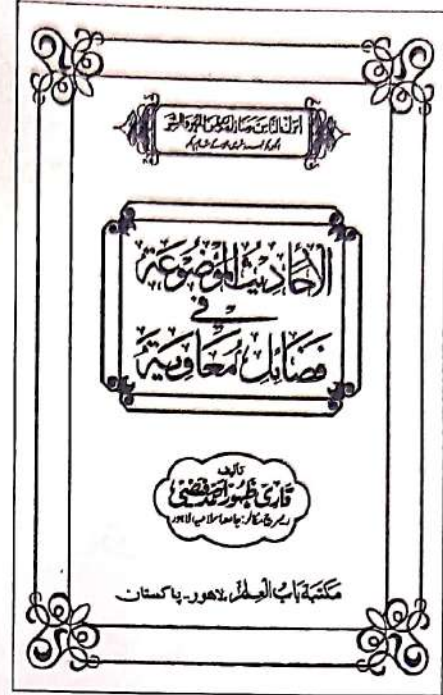 الأحاديث الموضوعة
في
فضائل معاوية
تأليف
قاری ظہور احمد فیضی
ریسرچ سکالر: جامعہ اسلامیہ لاہور
مکتبة باب العلم، لاهور۔ پاکستان